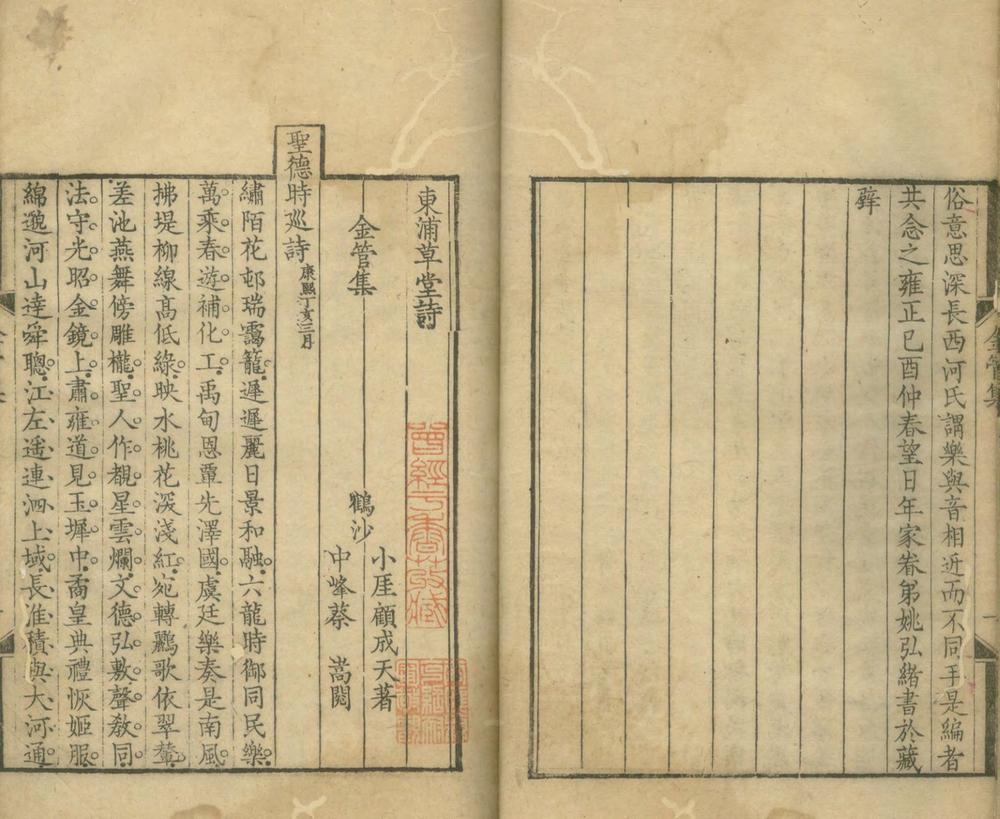 俗意思深長西河氏謂樂與音相近而不同手是編者
共念之雍正己酉仲春望日年家眷弟姚弘緒書於藏
金管集
東浦草堂詩
金管集
鶴沙
小厓顧成天著
中峰蔡 嵩閱
聖德時巡詩康熙丁亥三月
繡陌花邨瑞靄籠遲遲麗日景和融六龍時御同民樂
萬乘春遊補化工禹甸恩覃先澤國虞廷樂奏是南風
拂堤柳線高低綠映水桃花深淺紅宛轉鸝歌依翠輦
差池燕舞傍雕櫳聖人作覩星雲爛文德弘敷聲教同
法守光昭金鏡上肅雍道見玉墀中矞皇典禮恢姬服
綿邈河山達舜聰江左遙連泗上域長淮積與大河通